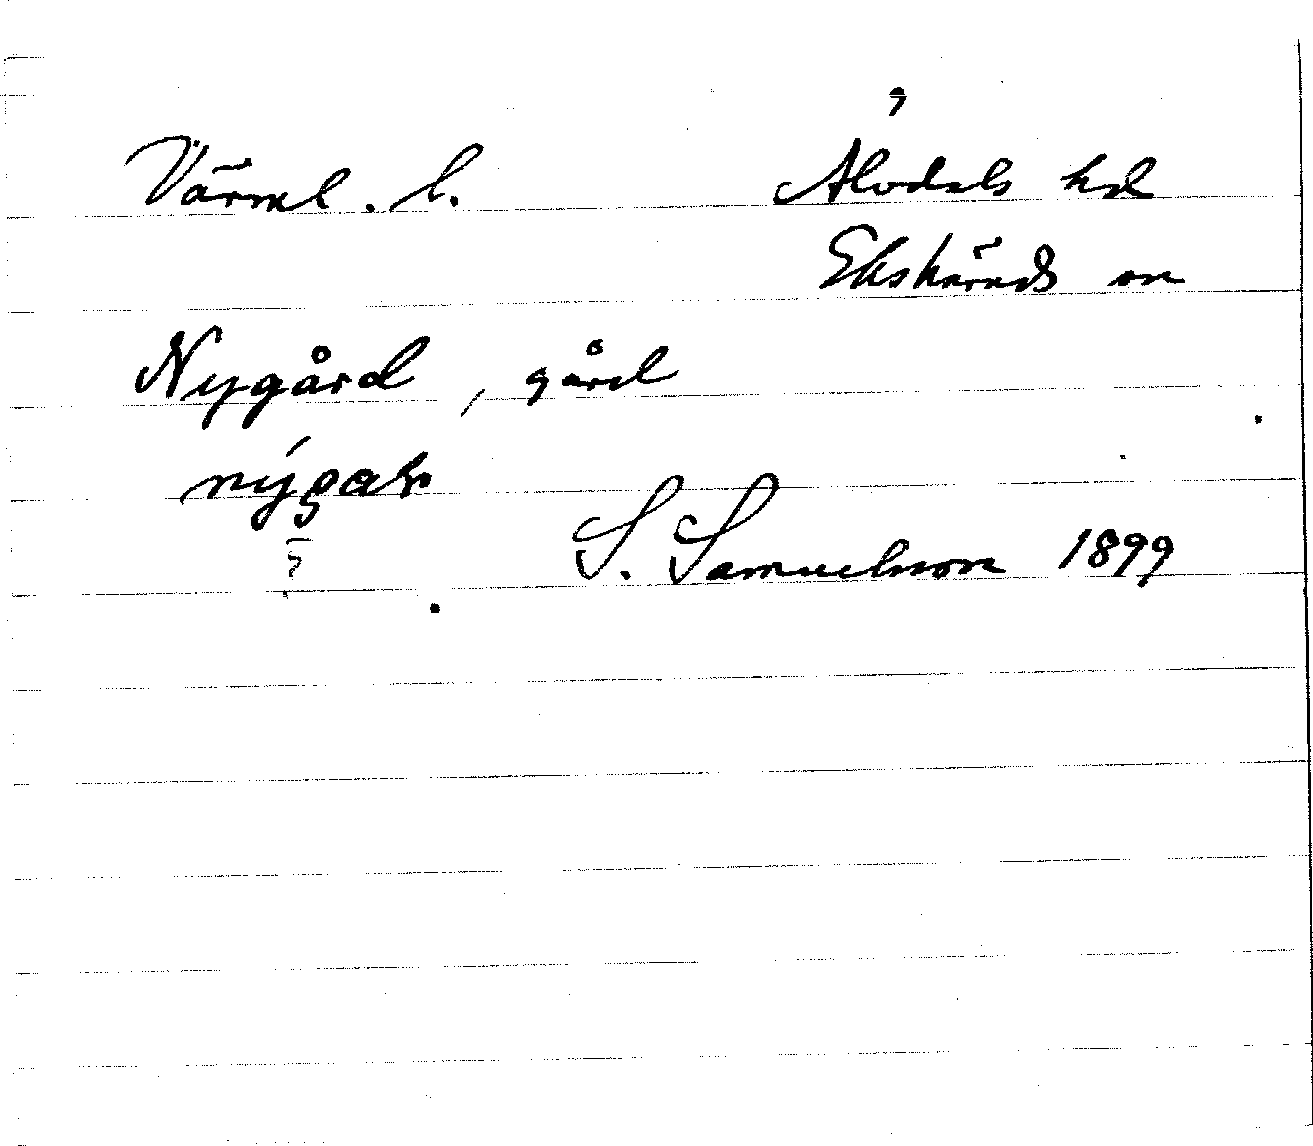 Värml. l. Älvdals hd
Ekshärads sn
Nygård, gård
S. Samuelsson 1899